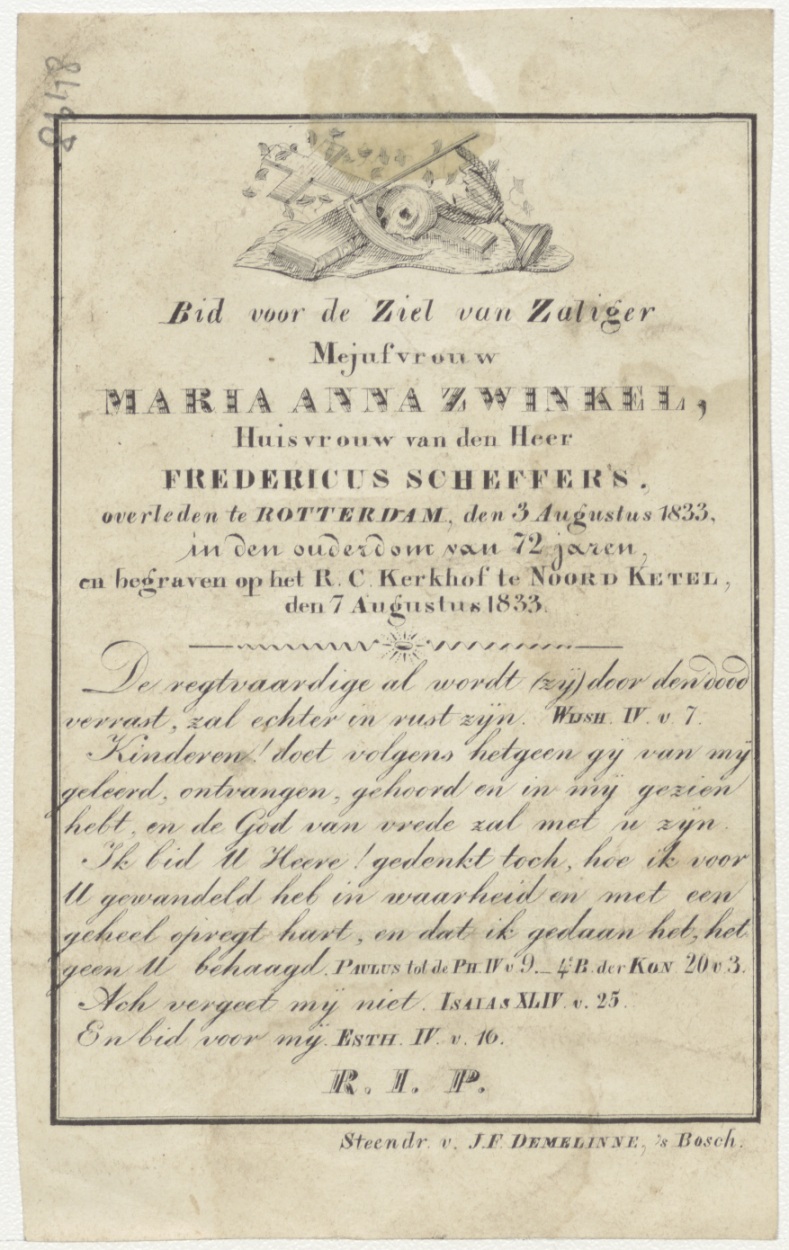 86498
Bid voor de Ziel van Zaliger
Mejufvrouw
MARIA ANNA ZWINKEL,
Huisvrouw van den Heer
FREDERICUS SCHEFFERS.
overleden te ROTTERDAM, den 3 Augustus 1833,
in den ouderdom van 72 jaren,
en begraven op het R. C. Kerkhof te NOORD KETEL,
den 7 Augustus 1833.
De regtvaardige al wordt (zij) door den dood
verrast, zal echter in rust zijn. WIJSH. IV. v. 7.
Kinderen! doet volgens hetgeen gij van mij
geleerd, ontvangen, gehoord en in mij gezien
hebt, en de God van vrede zal met u zijn.
Ik bid U Heere! gedenkt toch, hoe ik voor
U gewandeld heb in waarheid en met een
geheel opregt hart, en dat ik gedaan heb, het
geen U behaagd. PAULUS tot de PH. IV v 9. _ 4e B. der KON 20 v 3.
Ach vergeet mij niet. ISAIAS XLIV. v. 25.
En bid voor mij. ESTH. IV. v. 16.
R. I. P.
Steendr. v. J.F. DEMELINNE, 's Bosch.